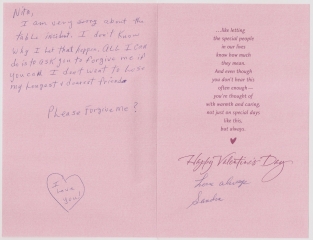 Nita,
I am very sorry about the
table incident. I don't know
why I let that happen. All I can
do is to ask you to forgive me if
you can. I don't want to lose
my longest & dearest friend.
Please Forgive me?
I
Love
you!
...like letting
the special people
in our lives
know how much
they mean.
And even though
you don't hear this
often enough—
you're thought of
with warmth and caring,
not just on special days
like this,
but always.
Happy Valentine's Day
Love always
Sandra